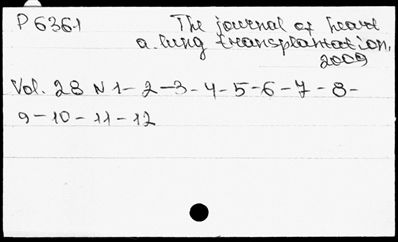 P 636.1 The journal of heart
a. lung transplantation,
2009
Vol. 28 N 1-2-3-4-5-6-7-8-
9-10-11-12